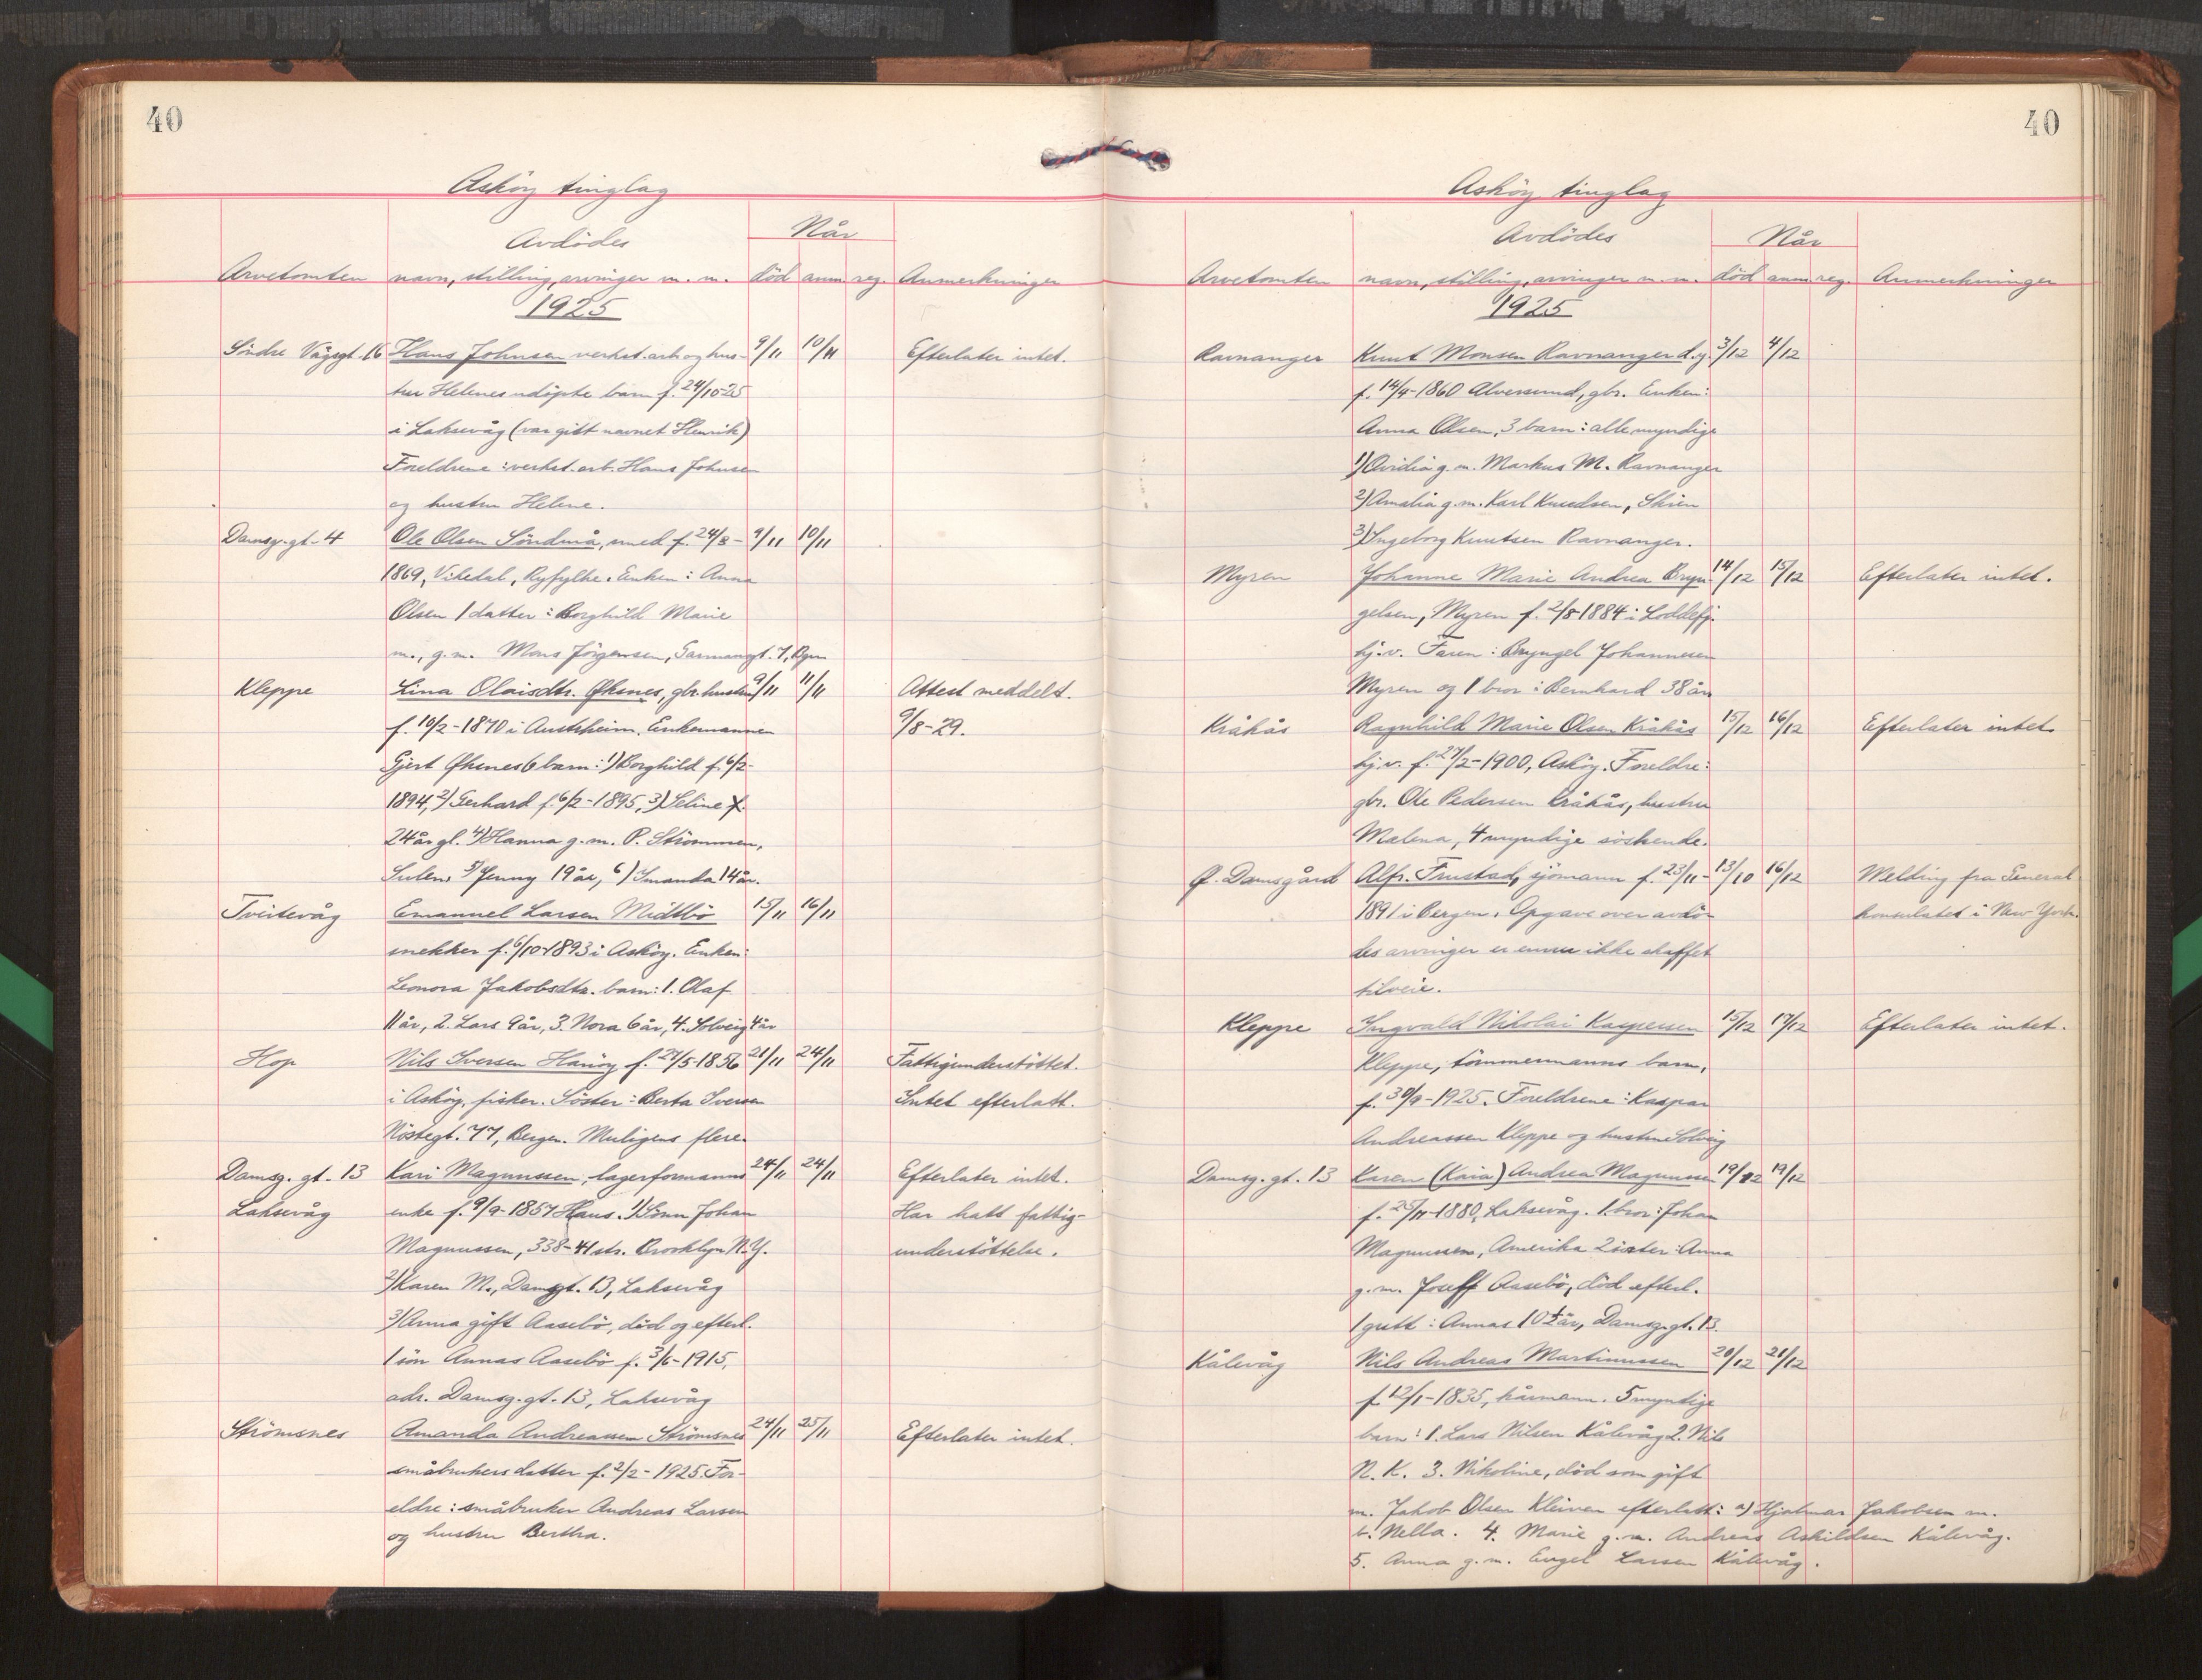 40
Asköy tinglag
Avdödes
Når
Arvetomten navn, stilling, arvinger m. m. död anm. reg. Anmerkninger
1925
Söndre Vågsgt. 16 Hans Johnsen verkst. arb. og hus- 9/11 10/11 Efterlater intet.
tru Helenes udöpte barn f. 24/10-25
i Laksevåg (var gitt navnet Henrik)
Foreldrene: verkst. arb. Hans Johnsen
og hustru Helene.
Damsg. gt. 4 Ole Olsen Söndmå, smed f. 24/8- 9/11 10/11
1869, Vikedal, Ryfylke. Enken: Anna
Olsen 1 datter: Borghild Marie
m., g.m. Mons Jörgensen, 7, Bgn
Kleppe Lina Olaisdtr. Øksnes, gbr. hustru 9/11 11/11 Attest meddelt.
f. 10/2-1870 i Austrheim. Enkemannen 9/8-29.
Gjert Øksnes 6 barn: 1) Borghild f. 6/2-
1894, 2) Gerhard f. 6/2-1895, 3) Seline f.
24 år gl. 4) Hanna g.m. P. Strömmen,
Sulen. 5) Jenny 19 år, 6) Imanda 14 år.
Tveitevåg Emanuel Larsen Midtbö 15/11 16/11
snekker f. 6/10-1893 i Asköy. Enken:
Leonora Jakobsdtr. barn: 1. Olaf
11 år, 2. Lars 9 år, 3. Nora 6 år, 4. Solveig 4 år
Hop Nils Iversen Hanöy f. 27/5-1856 21/11 24/11 Fattigunderstöttet.
i Asköy, fisker. Söster: Berta Iversen Intet efterlatt.
Nöstegt. 77, Bergen. Muligens flere.
Damsg. gt. 13 Kari Magnussen, lagerformanns 24/11 24/11 Efterlater intet.
Laksevåg enke f. 9/9-1857 Haus. 1) Sönn Johan Har hatt fattig-
Magnussen, 338-41 str. Brooklyn N.Y. understöttelse.
2) Karen M., Damsgt. 13, Laksevåg
3) Anna gift Aasebö, död og efterl.
1 sön Annas Aasebö f. 3/6-1915,
adr. Damsg. gt. 13, Laksevåg
Strömsnes Amanda Andreassen Strömsnes 24/11 25/11 Efterlater intet.
småbrukers datter f. 2/2-1925. For-
eldre: småbruker Andreas Larsen
og hustru Bertha.
40
Asköy tinglag
Avdödes
Når
Arvetomten navn, stilling, arvinger m. m. död anm. reg. Anmerkninger
1925
Ravnanger Knut Monsen Ravnanger d.y. 3/12 4/12
f. 14/4-1860 Alversund, gbr. Enken:
Anna Olsen, 3 barn: alle myndige
1) Ovidia g.m. Markus M. Ravnanger
2) Amalia g.m. Karl Knudsen, Skien
3) Ingeborg Knutsen Ravnanger.
Myren Johanne Marie Andrea Bryn- 14/12 15/12 Efterlater intet.
gelsen, Myren f. 2/8-1884 i Loddefj.
hj.v. Faren: Bryngel Johannesen
Myren og 1 bror: Bernhard 38 år
Kråkås Ragnhild Marie Olsen Kråkås 15/12 16/12 Efterlater intet.
hj.v. f. 27/2-1900, Asköy. Foreldre:
gbr. Ole Pedersen Kråkås, hustru
Malena, 4 myndige söskende.
Alfr. sjömann f. 23/11- 13/10 16/12 Melding fra General
Damsgård 1891 i Bergen. Opgave over avdö- konsulatet i New York.
des arvinger er ennu ikke skaffet
tilveie.
Kleppe Ingvald Nikolai Kaspersen 15/12 17/12 Efterlater intet.
Kleppe, tömmermanns barn,
f. 30/9-1925. Foreldrene: Kaspar
Andreassen Kleppe og hustru Solveig
Damsg. gt. 13 Karen (Kaia) Andrea Magnussen 19/12 19/12
f. 25/11-1880, Laksevåg. 1. bror: Johan
Magnussen, Amerika 2 söster: Anna
g.m. Joseff Aasebö, död efterl.
1 gutt: Annas 10 1/2 år, Damsg. gt. 13.
Kålevåg Nils Andreas Martinussen 20/12 21/12
f. 12/1-1835, kårmann. 5 myndige
barn: 1. Lars Nilsen Kålevåg 2. Nils
N. K. 3. Nikoline, död som gift
m. Jakob Olsen Kleiven efterlatt: a) Hjalmar Jakobsen m.
b. Nella. 4. Marie g.m. Andreas Askildsen Kålevåg.
5. Anna g.m. Engel Larsen Kålevåg.